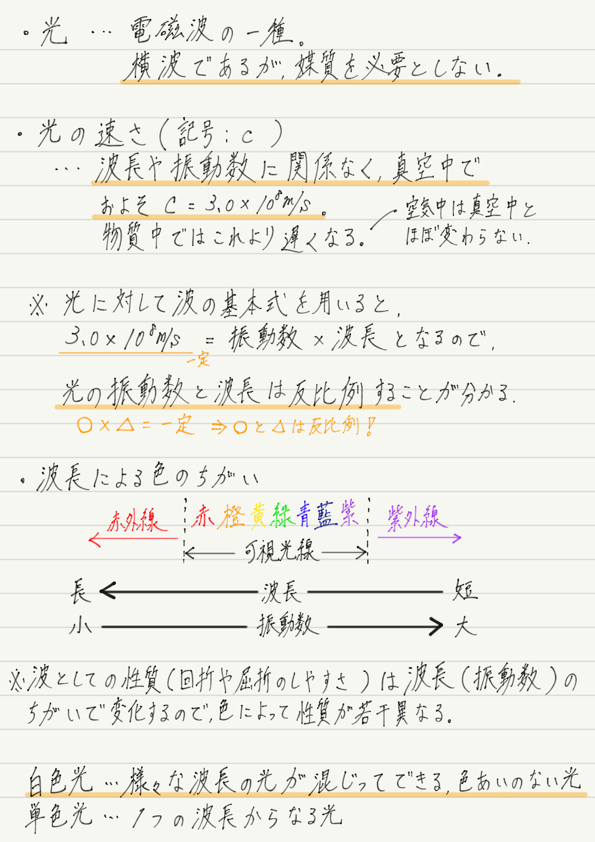 ・光 … 電磁波の一種。
横波であるが、媒質を必要としない。
・光の速さ(記号:c)
… 波長や振動数に関係なく、真空中で
およそ c = 3.0×10⁸m/s 。
空気中は真空中と
ほぼ変わらない.
物質中ではこれより遅くなる。
※ 光に対して波の基本式を用いると、
3.0×10⁸m/s = 振動数×波長となるので、
一定
光の振動数と波長は反比例することが分かる.
○×△=一定 ⇒○と△は反比例!
・波長による色のちがい
赤外線 赤橙黄緑青藍紫 紫外線
可視光線
長 波長 短
小 振動数 大
※波としての性質(回折や屈折のしやすさ)は波長(振動数)の
ちがいで変化するので、色によって性質が若干異なる。
白色光 … 様々な波長の光が混じってできる、色あいのない光
単色光 … 1つの波長からなる光